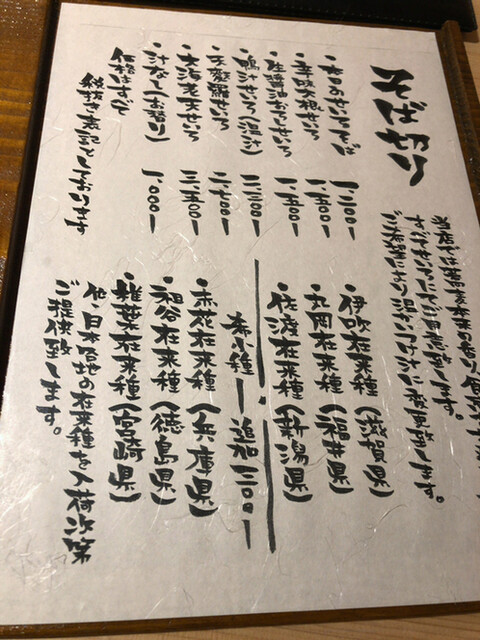 そば切り
当店では蕎麦本来の香り、風味
すべてせいろにてご用意致します。
ご希望により温かいつけ汁に変更致します。
・せいろそば 一、二〇〇-
・辛味大根せいろ 一、五〇〇-
・生醤油おろしせいろ 一、五〇〇-
・鴨汁せいろ(温汁) 二、二〇〇-
・天麩羅せいろ 二、七〇〇-
・大海老天せいろ 三、五〇〇-
・汁なし(お替り) 一、〇〇〇-
価格はすべて
税抜き表記としております
伊吹在来種(滋賀県)
丸岡在来種(福井県)
佐渡在来種(新潟県)
希少種-追加三〇〇-
・赤花在来種(兵庫県)
・祖谷在来種(徳島県)
・椎葉在来種(宮崎県)
他、日本各地の在来種を入荷次第
ご提供致します。